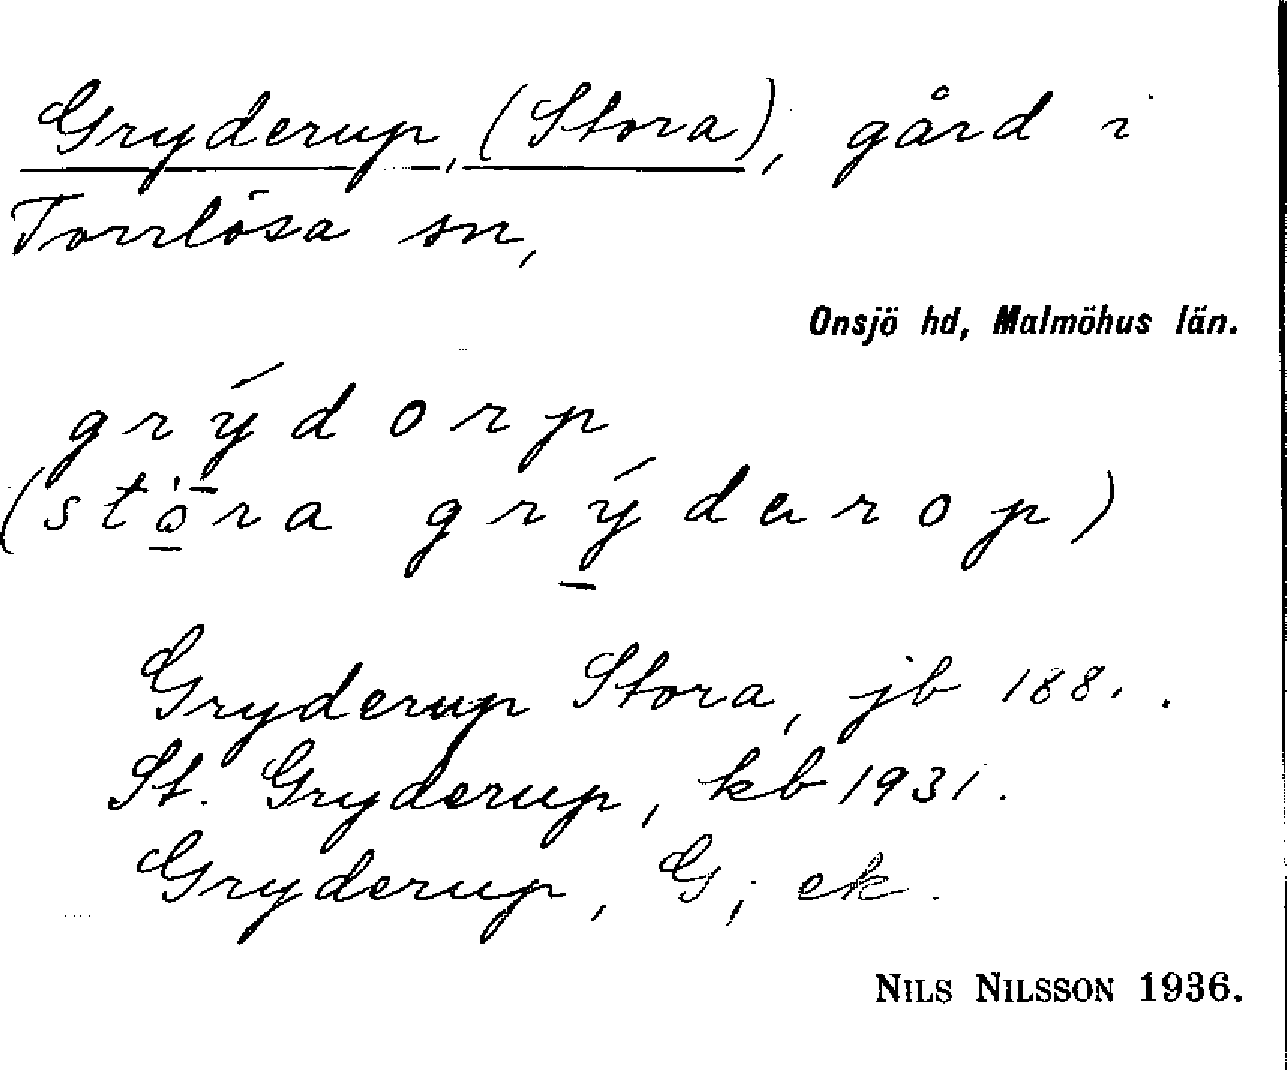 Gryderup, (Stora), gård i
Torrlösa sn,
Onsjö hd, Malmöhus län.
grýdorp
(stö̱ra grý̱darop)
Gryderup Stora, jb 188. .
St. Gryderup, kb 1931.
Gryderup, G; ek.
NILS NILSSON 1936.